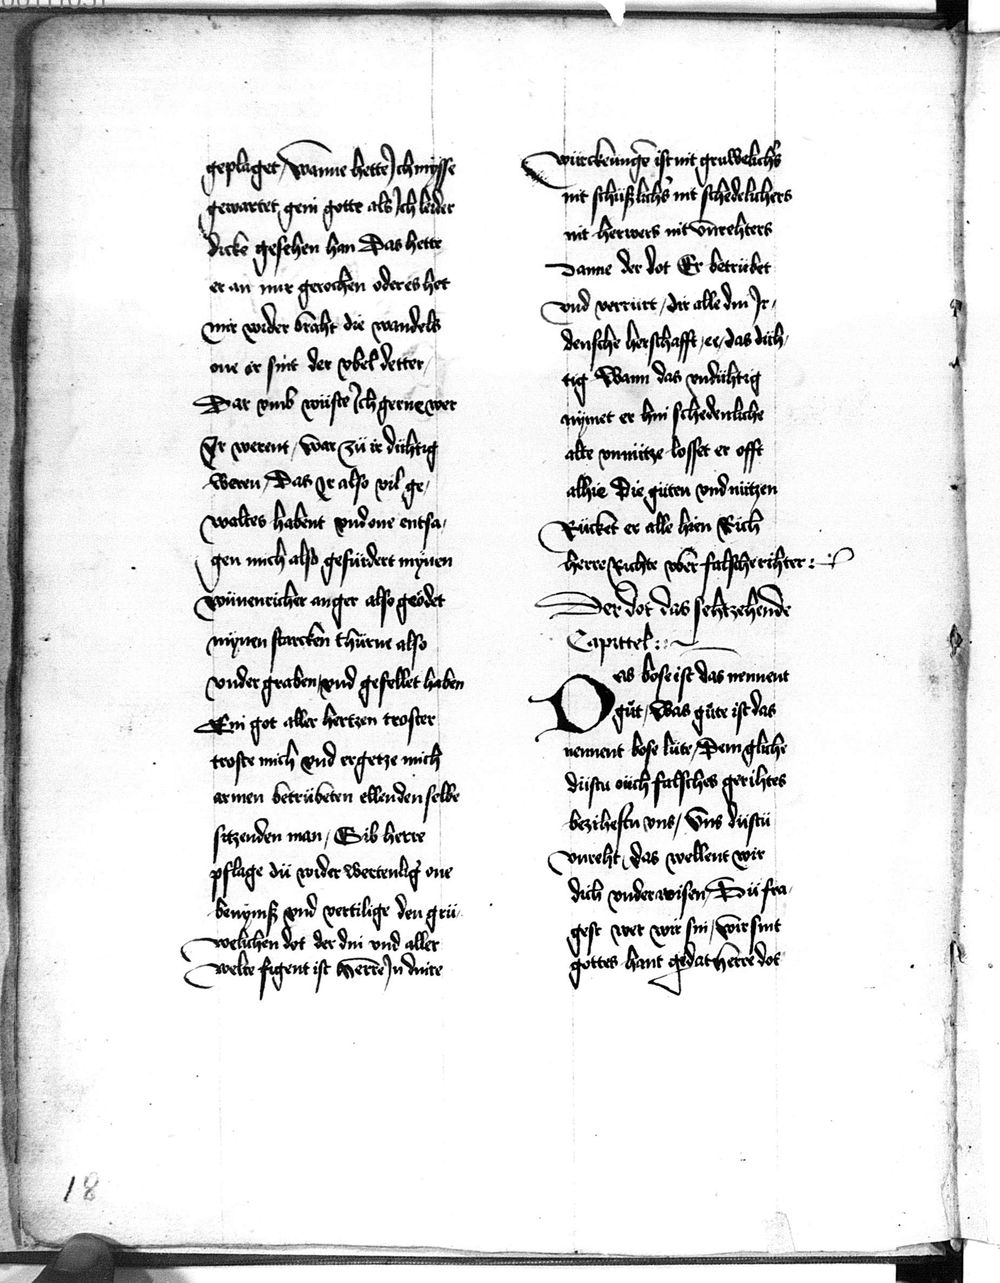 geplaget / Wanne hette Jch mysse
gewartet gein gotte als Jch leider
dicke gesehen han Das hette
er an mir gerochen oder es het
mir wider bracht die wandels
one Er sint der vbel detter /
Dar vmb wuste Jch gerne wer
Jr werent / war zü ir dühtig
weren / Das Jr also vil ge /
waltes habent vnd one entsa /
gen mich also gefürdert mynen
wünnenricher anger also geödet
mynen starcken thürne also
vnder graben vnd gefellet haben
Ein got aller hertzen troster
troste mich vnd ergetze mich
armen betrübeten ellenden selbe
sitzenden man / Gib herre
pflage dü wider wertenlig one
benymß vnd vertilige den grü
welichen dot der din vnd aller
welte figent ist Herre Jn dinre
würckeunge ist nit gruwelichs
nit schüßlichs nit schedelichers
nit herwers nit vnrehters
Danne der dot Er betrübet
vnd verrürt / dir alle din Jr /
densche herschafft / ee / das düch /
tig Wann das vndühtig
nymet er hin schedenliche
alte vnnütze losset er offt
alhie Die güten vnd nützen
Rücket er alle hien Rich
herre Richte vber falsche rihter :
Der dot das sehtzehende
Capittel :
Das bose ist das nennent
güt / Was güte ist das
nennent bose lüte / Dem gliche
düstu ouch falsches gerihtes
bezihestu vns / Vns düstü
vnreht / das wellent wir
dich vnderwisen / Dü fra /
gest wer wir sin / wir sint
gottes hant gedat herre dot
18